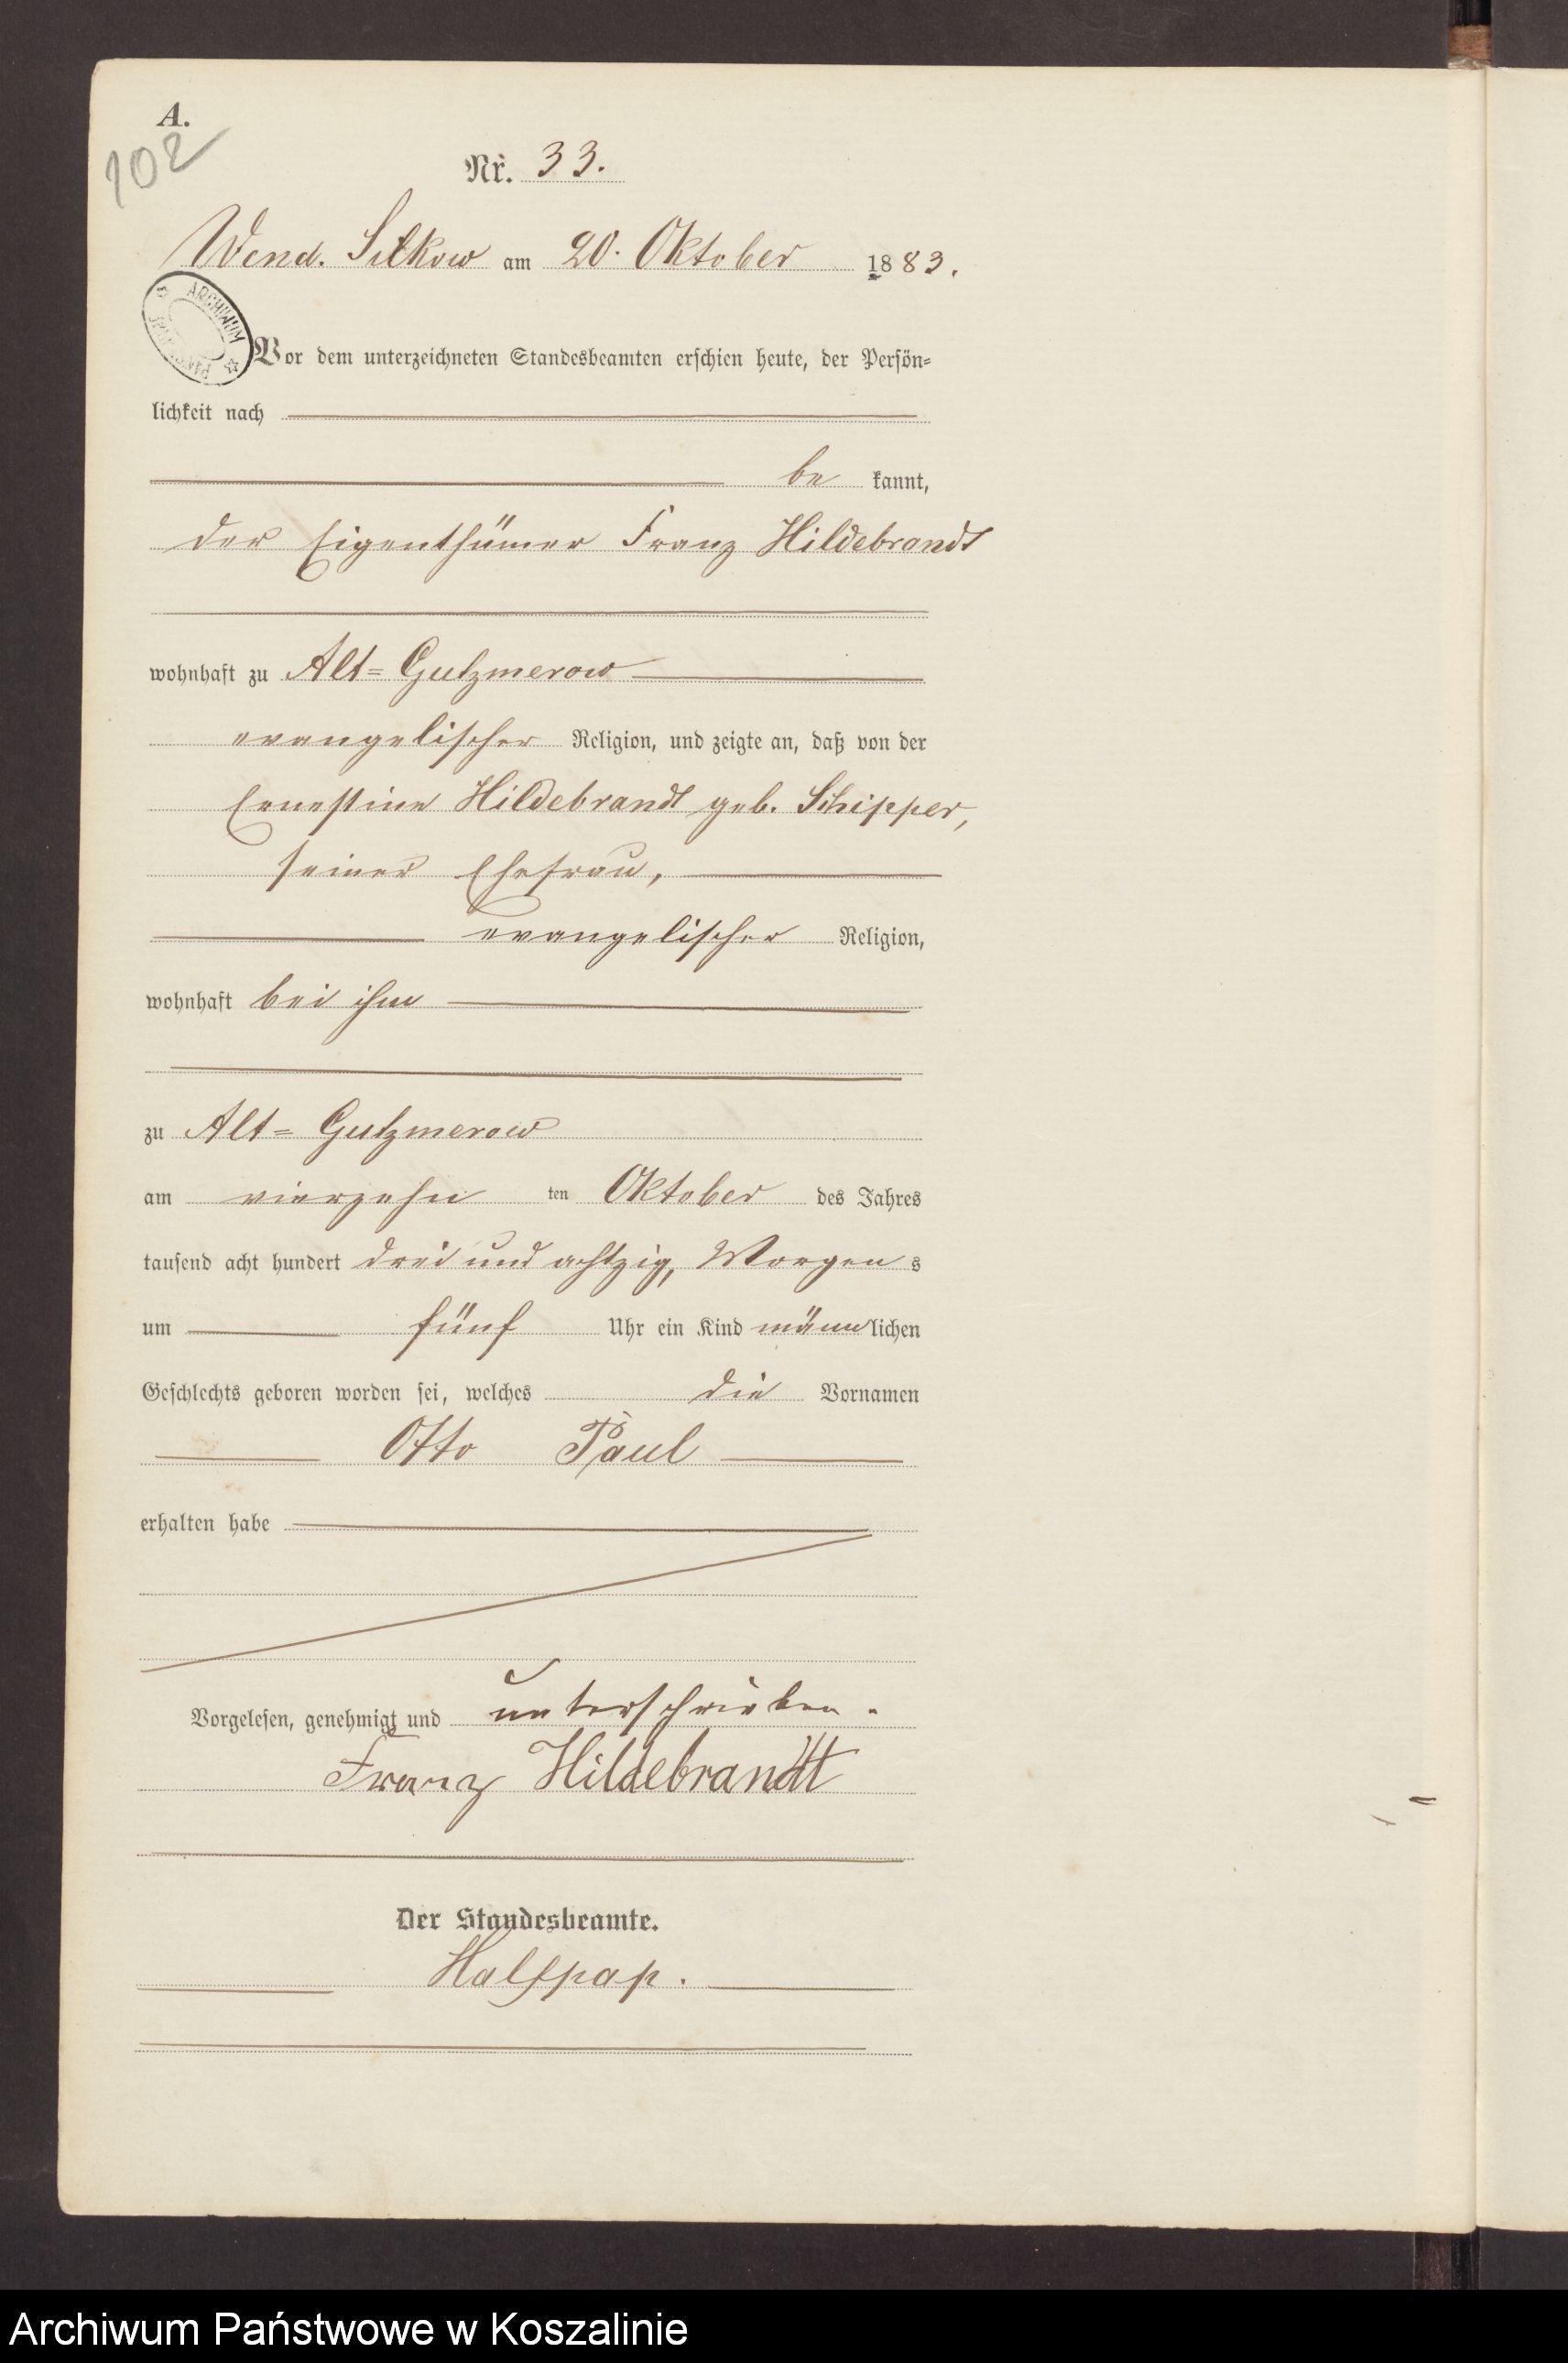 A.
102
Nr. 33.
Wend. Silkow am 20. Oktober 1883.
ARCHIWUM
Vor dem unterzeichneten Standesbeamten erschien heute, der Persön-
lichkeit nach
be kannt,
der Eigenthümer Franz Hildebrandt
wohnhaft zu Alt-Gutzmerow
evangelischer Religion, und zeigte an, daß von der
Ernestine Hildebrandt geb. Schipper,
seiner Ehefrau,
evangelischer Religion,
wohnhaft bei ihm
zu Alt-Gutzmerow
am vierzehn ten Oktober des Jahres
tausend acht hundert drei und achtzig, Morgens
um fünf Uhr ein Kind männlichen
Geschlechts geboren worden sei, welches die Vornamen
Otto Paul
erhalten habe
Vorgelesen, genehmigt und unterschrieben.
Franz Hildebrandt
Der Standesbeamte.
Halfpap.
Archiwum Państwowe w Koszalinie